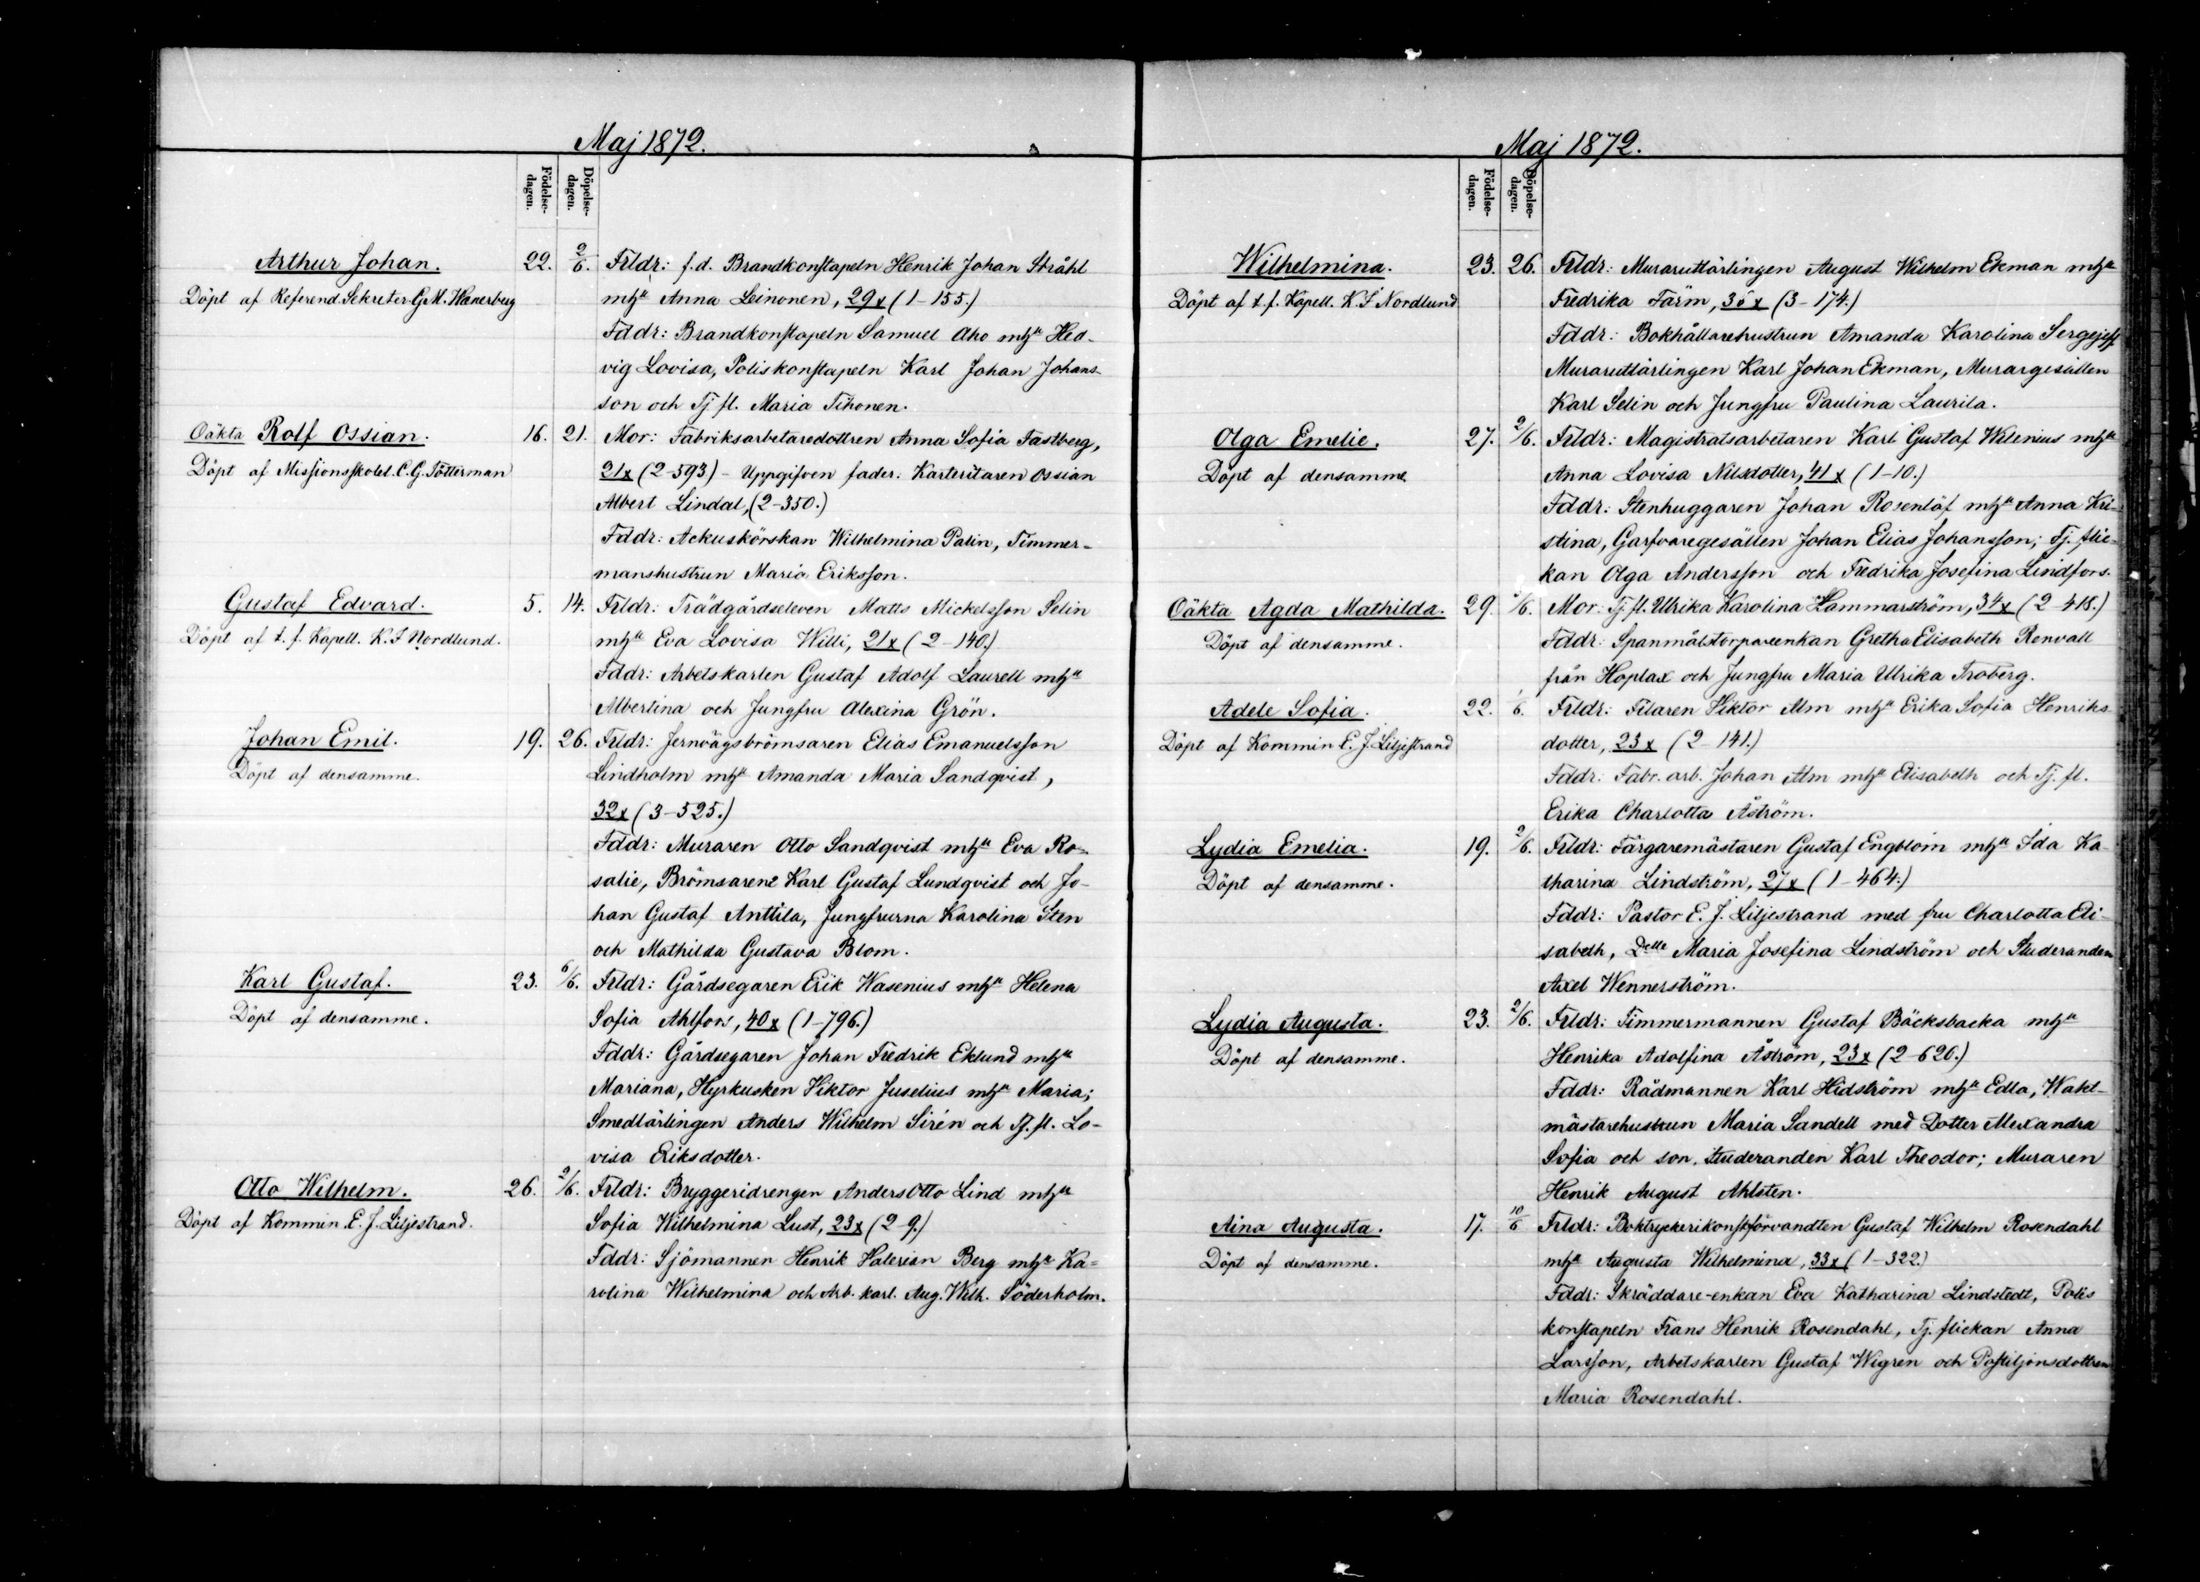 Maj 1872.
Födelse-
dagen.
Döpelse-
dagen.
Arthur Johan.
22.
2/6.
Frldr: f.d. Brandkonstapeln Henrik Johan Stråhl
Döpt af Referend. Sekreter G.M.
mh Anna Leinonen, 29x (1-155.)
Fddr: Brandkonstapeln Samuel Aho mh Hed-
vig Lovisa, Poliskonstapeln Karl Johan Johans-
son och Tj fl. Maria Tihonen.
Oäkta Rolf Ossian.
16.
21.
Mor: Fabriksarbetaredottren Anna Sofia Fastberg,
Döpt af Missionsskolel. C.G. Tötterman
21x (2-593) - Uppgifven fader: Karteritaren Ossian
Albert Lindal, (2-350.)
Fddr: Ackuskörskan Wilhelmina Palin, Timmer-
manshustrun Maria Eriksson.
Gustaf Edvard.
5.
14.
Frldr: Trädgårdseleven Matts Mickelsson Selin
Döpt af t. f. Kapell. K. F Nordlund.
mh Eva Lovisa Willi, 21x (2-140.)
Fddr: Arbetskarlen Gustaf Adolf Laurell mh
Albertina och Jungfru Alexina Grön.
Johan Emil.
19.
26.
Frldr: Jernvägsbrömsaren Elias Emanuelsson
Döpt af densamme.
Lindholm mh Amanda Maria Sandqvist,
32x (3-525.)
Fddr: Muraren Otto Sandqvist mh Eva Ro-
salie, Brömsarene Karl Gustaf Lundqvist och Jo-
han Gustaf Anttila, Jungfrurna Karolina Sten
och Mathilda Gustava Blom.
Karl Gustaf.
23.
6/6.
Frldr: Gårdsegaren Erik Wasenius mh Helena
Döpt af densamme.
Sofia Ahlfors, 40x (1-796.)
Fddr: Gårdsegaren Johan Fredrik Eklund mh
Mariana, Hyrkusken Viktor Juselius mh Maria;
Smedlärlingen Anders Wilhelm Sirén och Tj. fl. Lo-
visa Eriksdotter.
Otto Wilhelm.
26.
2/6.
Frldr: Bryggeridrengen Anders Otto Lind mh
Döpt af Kommin. E. J. Liljestrand.
Sofia Wilhelmina Lust, 23x (2-9.)
Fddr: Sjömannen Henrik Valerian Berg mh Ka-
rolina Wilhelmina och Arb. karl. Aug. Wilh. Söderholm.
Maj 1872.
Födelse-
dagen.
Döpelse-
dagen.
Wilhelmina.
23.
26.
Frldr: Murarutlärlingen August Wilhelm Ekman mh
Döpt af t. f. Kapell. K. F Nordlund
Fredrika Färm, (3-174.)
Fddr: Bokhållarehustrun Amanda Karolina
Murarutlärlingen Karl Johan Ekman, Murargesällen
Karl Selin och Jungfru Paulina Laurila.
Olga Emelie.
27.
2/6.
Frldr: Magistratsarbetaren Karl Gustaf Wilenius mh
Döpt af densamme
Anna Lovisa Nilsdotter, 41x (1-10.)
Fddr: Stenhuggaren Johan Rosenlöf mh Anna Kri-
stina, Garfvaregesällen Johan Elias Johansson; Tj. flic-
kan Olga Andersson och Fredrika Josefina Lindfors.
Oäkta Agda Mathilda.
29.
Mor: Tj. fl. Ulrika Karolina Hammarström, 34x (2-418.)
Döpt af densamme.
Fddr: Spanmålstorpareenkan Gretha Elisabeth Renvall
från Hoplax och Jungfru Maria Ulrika Froberg.
Adele Sofia.
22.
Frldr: Filaren Viktor Alm mh Erika Sofia Henriks
Döpt af Kommin E. J. Liljestrand
dotter, 23x (2-141.)
Fddr: Fabr. arb. Johan Alm mh Elisabeth och Tj. fl.
Erika Charlotta Åström.
Lydia Emelia.
19.
2/6.
Frldr: Färgaremästaren Gustaf Engblom mh Ida Ka-
Döpt af densamme.
tharina Lindström, 27x (1-464.)
Fddr: Pastor E. J. Liljestrand med fru Charlotta Eli-
sabeth, Delle Maria Josefina Lindström och Studeranden
Axel Wennerström.
Lydia Augusta.
23.
2/6.
Frldr: Timmermannen Gustaf Bäcksbacka mh
Döpt af densamme.
Henrika Adolfina Åström, 23x (2-620.)
Fddr: Rådmannen Karl Hidström mh Edla, Wakt-
mästarehustrun Maria Sandell med Dotter Alexandra
Sofia och son, Studeranden Karl Theodor; Muraren
Henrik August Ahlsten.
Aina Augusta.
17.
10/6
Frldr: Boktryckerikonstförvandten Gustaf Wilhelm Rosendahl
Döpt af densamme.
mh Augusta Wilhelmina, 33x (1-322.)
Fddr: Skräddare-enkan Eva Katharina Lindstedt, Polis
konstapeln Frans Henrik Rosendahl, Tj. flickan Anna
Larsson, Arbetskarlen Gustaf Wigren och Postiljonsdottren
Maria Rosendahl.